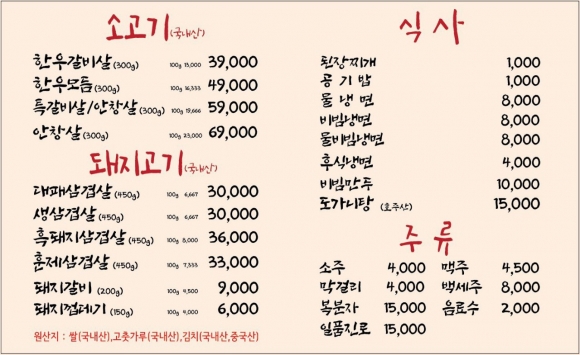 소고기(국내산)
한우갈비살(300g) 100g 13,000 39,000
한우모듬(300g) 100g 16,333 49,000
특갈비살/안창살(300g) 100g 19,666 59,000
안창살(300g) 100g 23,000 69,000
돼지고기(국내산)
대패삼겹살(450g) 100g 6,667 30,000
생삼겹살(450g) 100g 6,667 30,000
흑돼지삼겹살(450g) 100g 8,000 36,000
훈제삼겹살(450g) 100g 7,333 33,000
돼지갈비(200g) 100g 4,500 9,000
돼지껍데기(150g) 100g 4,000 6,000
원산지 : 쌀(국내산),고춧가루(국내산),김치(국내산,중국산)
식사
된장찌개 1,000
공기밥 1,000
물냉면 8,000
비빔냉면 8,000
물비빔냉면 8,000
후식냉면 4,000
비빔만두 10,000
도가니탕 (호주산) 15,000
주류
소주 4,000 맥주 4,500
막걸리 4,000 백세주 8,000
복분자 15,000 음료수 2,000
일품진로 15,000